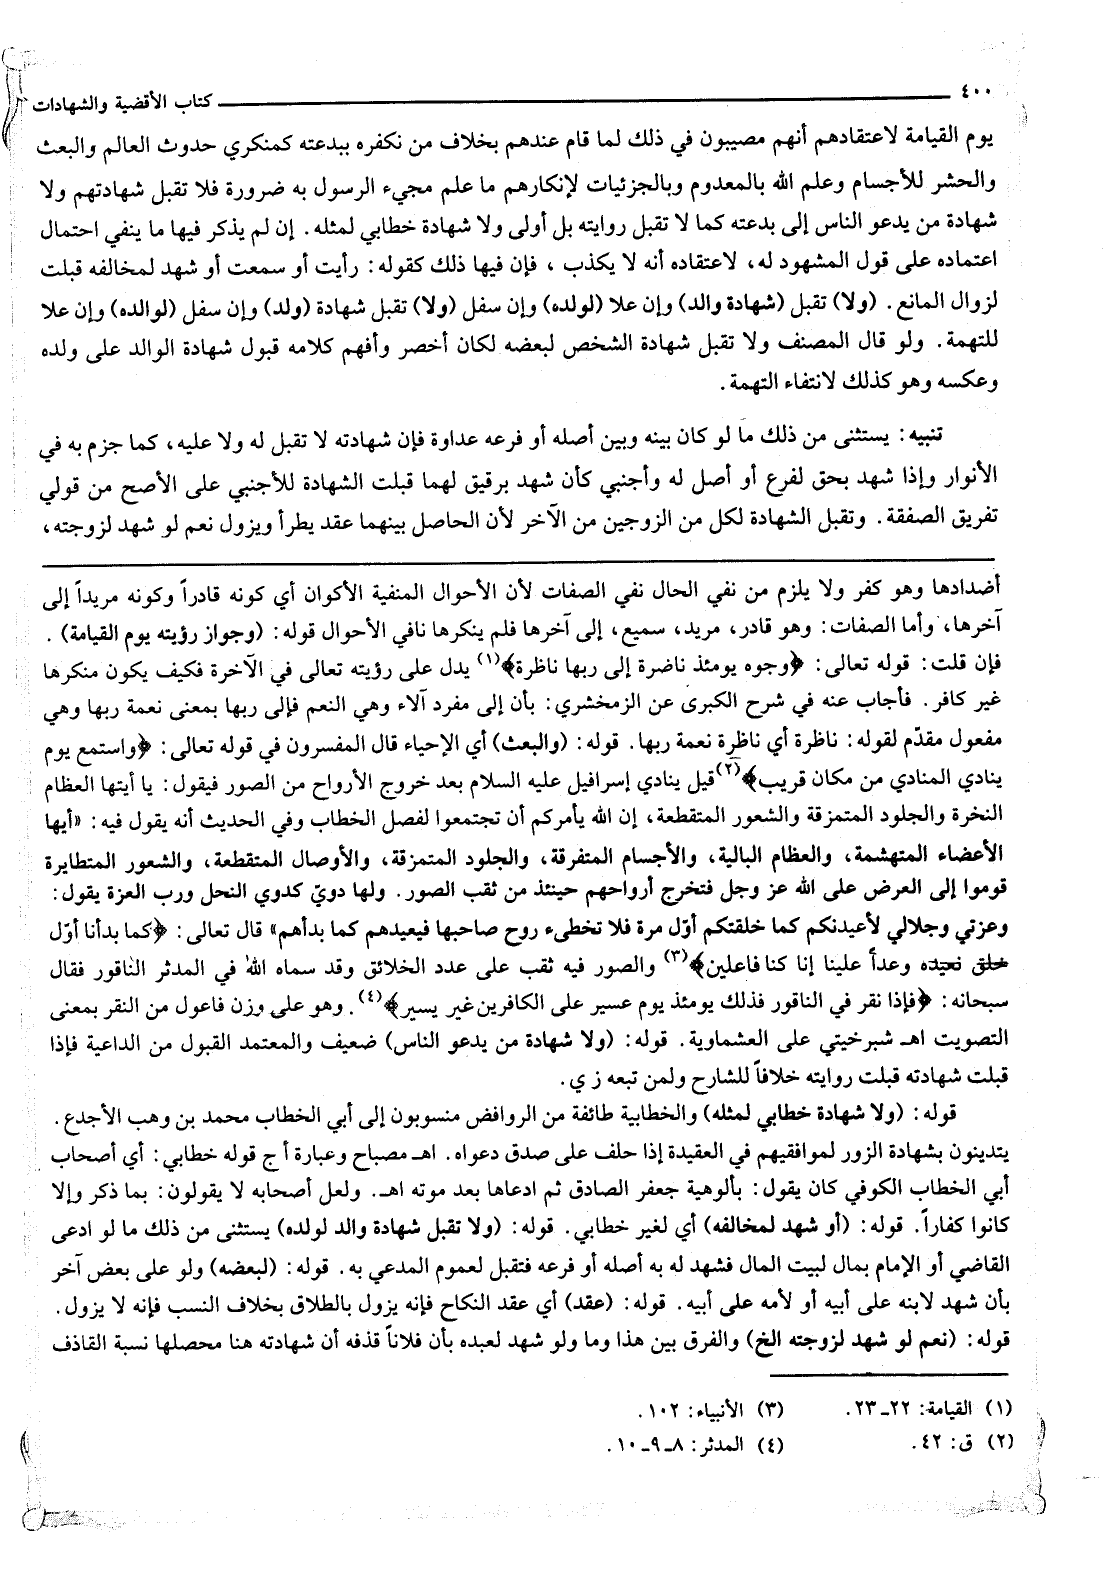 ٤٠٠ كتاب الأقضية والشهادات
يوم القيامة لاعتقادهم أنهم مصيبون في ذلك لما قام عندهم بخلاف من نكفره ببدعته كمنكري حدوث العالم والبعث
والحشر للأجسام وعلم الله بالمعدوم وبالجزئيات لإنكارهم ما علم مجيء الرسول به ضرورة فلا تقبل شهادتهم ولا
شهادة من يدعو الناس إلى بدعته كما لا تقبل روايته بل أولى ولا شهادة خطابي لمثله. إن لم يذكر فيها ما ينفي احتمال
اعتماده على قول المشهود له، لاعتقاده أنه لا يكذب، فإن فيها ذلك كقوله: رأيت أو سمعت أو شهد لمخالفه قبلت
لزوال المانع. (ولا) تقبل (شهادة والد) وإن علا (لولده) وإن سفل (ولا) تقبل شهادة (ولد) وإن سفل (لوالده) وإن علا
للتهمة. ولو قال المصنف ولا تقبل شهادة الشخص لبعضه لكان أخصر وأفهم كلامه قبول شهادة الوالد على ولده
وعكسه وهو كذلك لانتفاء التهمة.
تنبيه: يستثنى من ذلك ما لو كان بينه وبين أصله أو فرعه عداوة فإن شهادته لا تقبل له ولا عليه، كما جزم به في
الأنوار وإذا شهد بحق لفرع أو أصل له وأجنبي كأن شهد برقيق لهما قبلت الشهادة للأجنبي على الأصح من قولي
تفريق الصفقة. وتقبل الشهادة لكل من الزوجين من الآخر لأن الحاصل بينهما عقد يطرأ ويزول نعم لو شهد لزوجته،
أضدادها وهو كفر ولا يلزم من نفي الحال نفي الصفات لأن الأحوال المنفية الأكوان أي كونه قادراً وكونه مريداً إلى
آخرها، وأما الصفات: وهو قادر، مريد، سميع، إلى آخرها فلم ينكرها نافي الأحوال قوله: (وجواز رؤيته يوم القيامة).
فإن قلت: قوله تعالى: ﴿وجوه يومئذ ناضرة إلى ربها ناظرة﴾(١) يدل على رؤيته تعالى في الآخرة فكيف يكون منكرها
غير كافر. فأجاب عنه في شرح الكبرى عن الزمخشري: بأن إلى مفرد آلاء وهي النعم فإلى ربها بمعنى نعمة ربها وهي
مفعول مقدّم لقوله: ناظرة أي ناظرة نعمة ربها. قوله: (والبعث) أي الإحياء قال المفسرون في قوله تعالى: ﴿واستمع يوم
ينادي المنادي من مكان قريب﴾(٢) قيل ينادي إسرافيل عليه السلام بعد خروج الأرواح من الصور فيقول: يا أيتها العظام
النخرة والجلود المتمزقة والشعور المتقطعة، إن الله يأمركم أن تجتمعوا لفصل الخطاب وفي الحديث أنه يقول فيه: «أيها
الأعضاء المتهشمة، والعظام البالية، والأجسام المتفرقة، والجلود المتمزقة، والأوصال المتقطعة، والشعور المتطايرة
قوموا إلى العرض على الله عز وجل فتخرج أرواحهم حينئذ من ثقب الصور. ولها دويّ كدوي النحل ورب العزة يقول:
وعزتي وجلالي لأعيدنكم كما خلقتكم أوّل مرة فلا تخطىء روح صاحبها فيعيدهم كما بدأهم» قال تعالى: ﴿كما بدأنا أوّل
خلق نعيده وعداً علينا إنا كنا فاعلين﴾(٣) والصور فيه ثقب على عدد الخلائق وقد سماه الله في المدثر الناقور فقال
سبحانه: ﴿فإذا نقر في الناقور فذلك يومئذ يوم عسير على الكافرين غير يسير﴾(٤). وهو على وزن فاعول من النقر بمعنى
التصويت اهـ شبرخيتي على العشماوية. قوله: (ولا شهادة من يدعو الناس) ضعيف والمعتمد القبول من الداعية فإذا
قبلت شهادته قبلت روايته خلافاً للشارح ولمن تبعه ز ي.
قوله: (ولا شهادة خطابي لمثله) والخطابية طائفة من الروافض منسوبون إلى أبي الخطاب محمد بن وهب الأجدع.
يتدينون بشهادة الزور لموافقيهم في العقيدة إذا حلف على صدق دعواه. اهـ مصباح وعبارة أ ج قوله خطابي: أي أصحاب
أبي الخطاب الكوفي كان يقول: بألوهية جعفر الصادق ثم ادعاها بعد موته اهـ. ولعل أصحابه لا يقولون: بما ذكر وإلا
كانوا كفاراً. قوله: (أو شهد لمخالفه) أي لغير خطابي. قوله: (ولا تقبل شهادة والد لولده) يستثنى من ذلك ما لو ادعى
القاضي أو الإمام بمال لبيت المال فشهد له به أصله أو فرعه فتقبل لعموم المدعي به. قوله: (لبعضه) ولو على بعض آخر
بأن شهد لابنه على أبيه أو لأمه على أبيه. قوله: (عقد) أي عقد النكاح فإنه يزول بالطلاق بخلاف النسب فإنه لا يزول.
قوله: (نعم لو شهد لزوجته الخ) والفرق بين هذا وما ولو شهد لعبده بأن فلاناً قذفه أن شهادته هنا محصلها نسبة القاذف
(١) القيامة: ٢٢ـ٢٣. (٣) الأنبياء: ١٠٢.
(٢) ق: ٤٢. (٤) المدثر: ٨ـ٩ـ١٠.